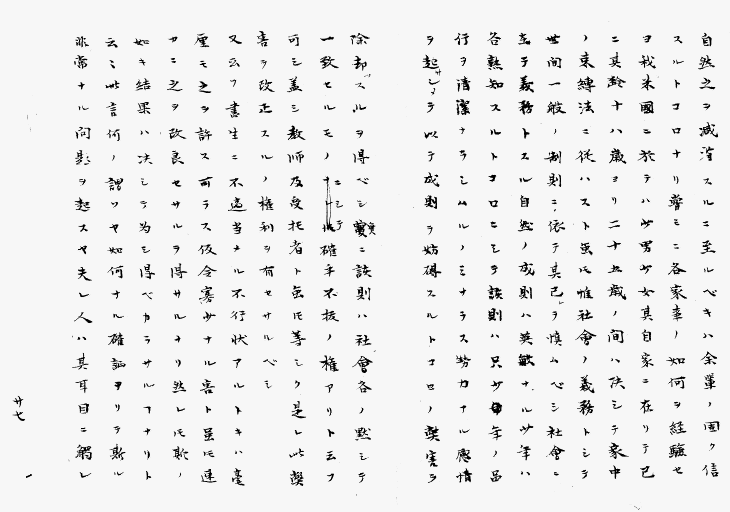 自然之ヲ減消スルニ至ルベキハ余輩ノ固ク信
スルトコロナリ嘗ミニ各家事ノ如何ヲ経験セ
ヨ我米國ニ於テハ少男少女其自家ニ在リテ已
ニ其齢十八歳ヨリ二十五歳ノ間ハ决シテ家中
ノ束縛法ニ從ハスト虽𪜈惟社會ノ義務トシテ
世間一般ノ制則ニ依テ其己ヲ慎ムベシ社會ニ
在テ義務トスル自然ノ成則ハ英敏ナル少年ハ
各熟知スルトコロニシテ該則ハ只少年ノ品
行ヲ清潔ナラシムルノミナラス勢力ナル慝情
ヲ起サシメテ以テ成則ヲ妨碍スルトコロノ奬害ヲ
除却スルヲ得ベシ實ニ該則ハ社會各ノ黙シテ
一致セルモノニシテ確乎不抜ノ權アリト云フ
可シ盖シ教師及受托者ト虽𪜈等シク是レ此奬
害ヲ改正スルノ権利ヲ有セサルベシ
又云フ書生ニ不適当ナル不行状アルトキハ毫
厘モ之ヲ許ス可テス仮令寡少ナル害ト虽𪜈速
カニ之ヲ改良セサルヲ得サルナリ然レ𪜈斯ノ
如キ結果ハ决シテ為シ得ベカラサルコナリト
云ミ此言何ノ謂ソヤ如何ナル確論ヲリテ斯ル
非常ナル問題ヲ起スヤ夫レ人ハ其耳目ニ觸レ
廿七